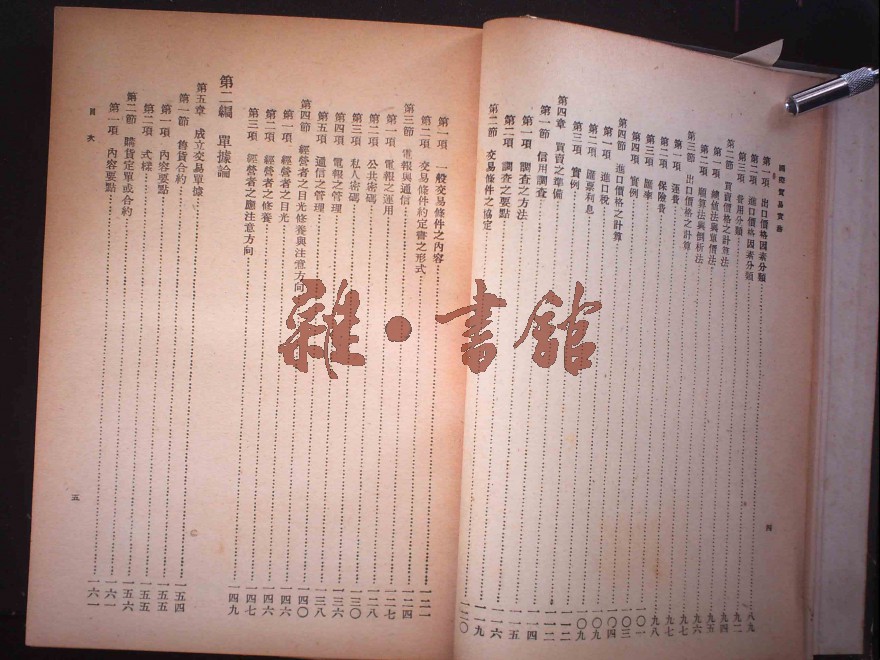 國際貿易實務
第一項 出口價格因素分類 八九
第二項 進口價格因素分類 九二
第三項 費用分類 九四
第二節 買賣價格之計算法 九五
第一項 總值法與單價法 九六
第二項 順算法與倒析法 九七
第三節 出口價格之計算 九七
第一項 運費 九八
第二項 保險費 一〇一
第三項 匯率 一〇三
第四項 實例 一〇四
第四節 進口價格之計算 一〇九
第一項 進口稅 一〇九
第二項 匯票利息 一一二
第三項 實例 一一二
第四章 買賣之準備
第一節 信用調查 一一四
第一項 調查之方法 一一五
第二項 調查之要點 一一六
第二節 交易條件之協定 一二〇
四
第一項 一般交易條件之內容 一二一
第二項 交易條件約定書之形式 一二四
第三節 電報與通信 一二七
第一項 電報之運用 一二八
第二項 公共密碼 一三〇
第三項 私人密碼 一三六
第四項 電報之管理 一三八
第五項 通信之管理 一四〇
第四節 經營者之目光修養與注意方向 一四六
第一項 經營者之目光 一四六
第二項 經營者之修養 一四七
第三項 經營者之應注意方向 一四九
第二編 單據論
第五章 成立交易單據
第一節 售貨合約 一五四
第一項 內容要點 一五五
第二項 式樣 一五五
第二節 購貨定單或合約 一五六
第一項 內容要點 一六一
目次
五
雜·書館